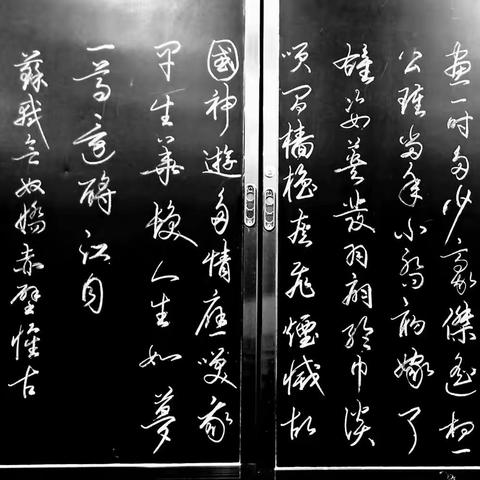 畫一時多少豪傑遙想
公瑾當年小喬初嫁了
雄姿英發羽扇綸巾談
笑間檣櫓灰飛煙滅故
國神遊多情應笑我
早生華髮人生如夢
一尊還酹江月
蘇軾念奴嬌赤壁懷古